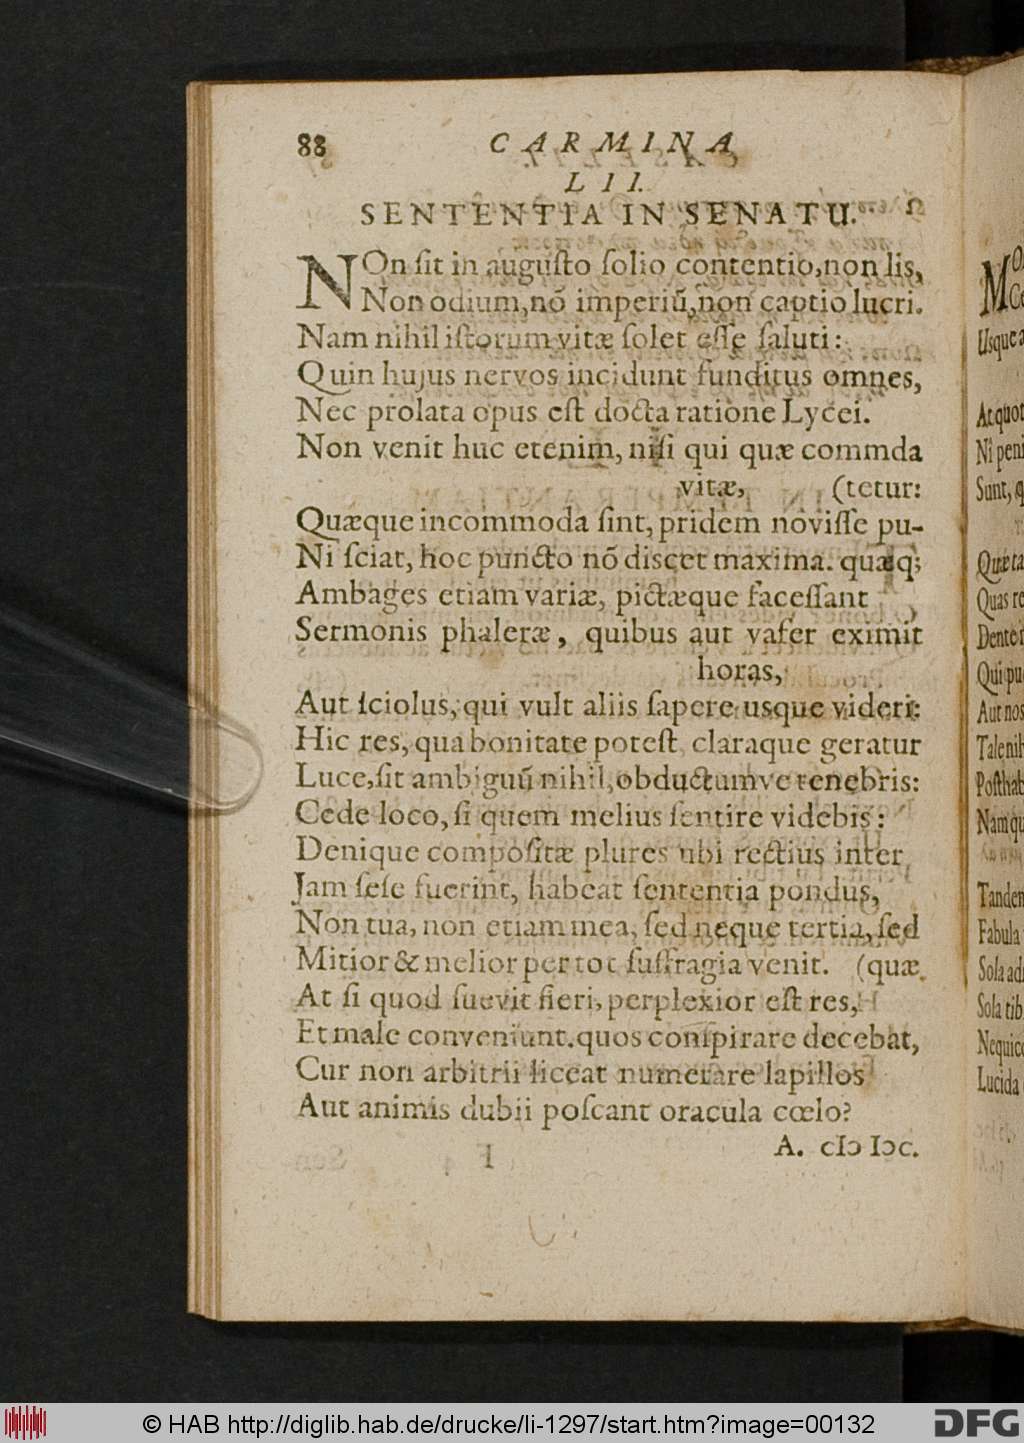 88 CARMINA
LII.
SENTENTIA IN SENATU.
NOn ſit in auguſto ſolio contentio, non lis,
Non odium, nō imperiū, non captio lucri.
Nam nihil iſtorum vitæ ſolet eſſe ſaluti:
Quin hujus nervos incidunt funditus omnes,
Nec prolata opus eſt docta ratione Lycei.
Non venit huc etenim, niſi qui quæ commda
vitæ, (tetur:
Quæque incommoda ſint, pridem noviſſe pu-
Ni ſciat, hoc puncto nō diſcet maxima. quæq;
Ambages etiam variæ, pictæque faceſſant
Sermonis phaleræ, quibus aut vafer eximit
horas,
Aut ſciolus, qui vult aliis ſapere usque videri:
Hic res, qua bonitate poteſt, claraque geratur
Luce, ſit ambiguū nihil, obductumve tenebris:
Cede loco, ſi quem melius ſentire videbis:
Denique compoſitæ plures ubi rectius inter
Jam ſeſe fuerint, habeat ſententia pondus,
Non tua, non etiam mea, ſed neque tertia, ſed
Mitior & melior per tot ſuffragia venit. (quæ
At ſi quod ſuevit fieri, perplexior eſt res,
Et male conveniunt. quos conſpirare decebat,
Cur non arbitrii liceat numerare lapillos
Aut animis dubii poſcant oracula cœlo?
A. cIↄ Iↄc.
Usque
At quot
Ni peni
Sunt, q
Quæ ta
Quas re
Dente i
Qui pu
Aut nos
Tale nih
Poſthab
Nam qu
Tanden
Fabula
Sola ad
Sola tib
Nequicq
Lucida
© HAB http://diglib.hab.de/drucke/li-1297/start.htm?image=00132
DFG